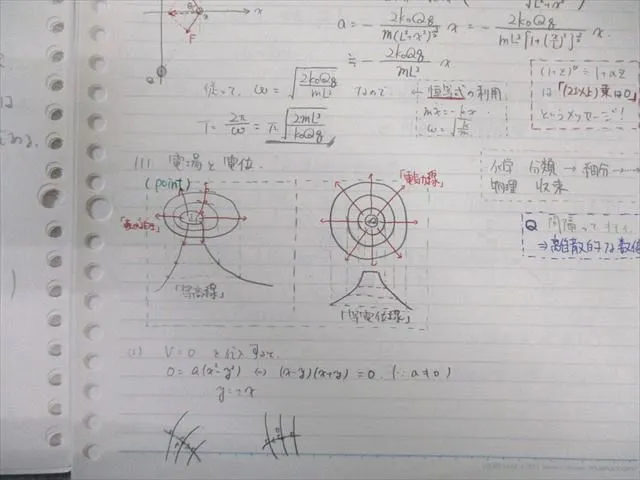 x
F
Q
a = - \frac{2k_0Qq}{m(L^2+x^2)^{\frac{3}{2}}} x = - \frac{2k_0Qq}{mL^3[1+(\frac{x}{L})^2]^{\frac{3}{2}}} x.
≒ - \frac{2k_0Qq}{mL^3} x
従って、ω = \sqrt{\frac{2k_0Qq}{mL^3}} なので
T = \frac{2π}{ω} = π\sqrt{\frac{2mL^3}{k_0Qq}}
恒等式の利用
mẍ = -kx
ω = \sqrt{\frac{k}{m}}
(1+z)^a ≒ 1+az
は「(2次以上)乗は0」
というメッセージ!
(1) 電場と電位.
(point)
「等高線」
「電気力線」
「等電位線」
化学 分類 → 細分 → →
物理 収束
Q
⇒ 離散的な数値
V=0 を代入すると、
0 = a(x²-y²) ⇔ (x-y)(x+y) = 0. (∵ a≠0)
y = ±x